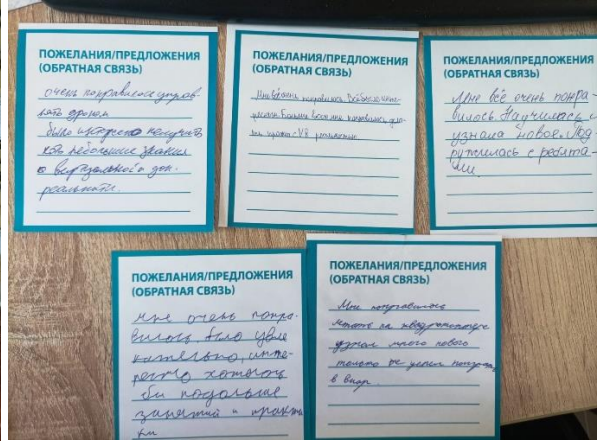 ПОЖЕЛАНИЯ/ПРЕДЛОЖЕНИЯ
(ОБРАТНАЯ СВЯЗЬ)
очень понравилось управ-
лять дроном
было интересно получить
хоть небольшие знания
о виртуальной и доп.
реальности.
ПОЖЕЛАНИЯ/ПРЕДЛОЖЕНИЯ
(ОБРАТНАЯ СВЯЗЬ)
Мне очень понравилось. Всё было инте-
ресно. Больше всего мне понравились
VR
ПОЖЕЛАНИЯ/ПРЕДЛОЖЕНИЯ
(ОБРАТНАЯ СВЯЗЬ)
Мне всё очень понра-
вилось. Научилась и
узнала новое. Под
ружилась с ребята-
ми.
ПОЖЕЛАНИЯ/ПРЕДЛОЖЕНИЯ
(ОБРАТНАЯ СВЯЗЬ)
мне очень понра-
вилось было увле
кательно, инте-
ресно хотелось
бы подольше
занятий и практи
ки
ПОЖЕЛАНИЯ/ПРЕДЛОЖЕНИЯ
(ОБРАТНАЯ СВЯЗЬ)
Мне понравилось
летать на квадрокоптере
узнал много нового
только не успел поиграть
в виар.